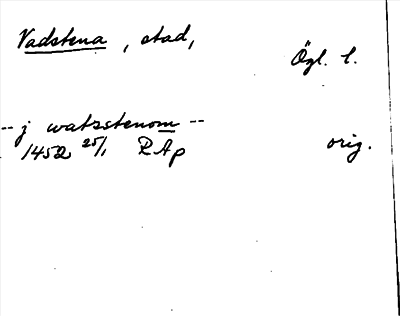 Vadstena, stad,
Ögl. l.
-- j watzstenom --
1452 25/1 RAp
orig.